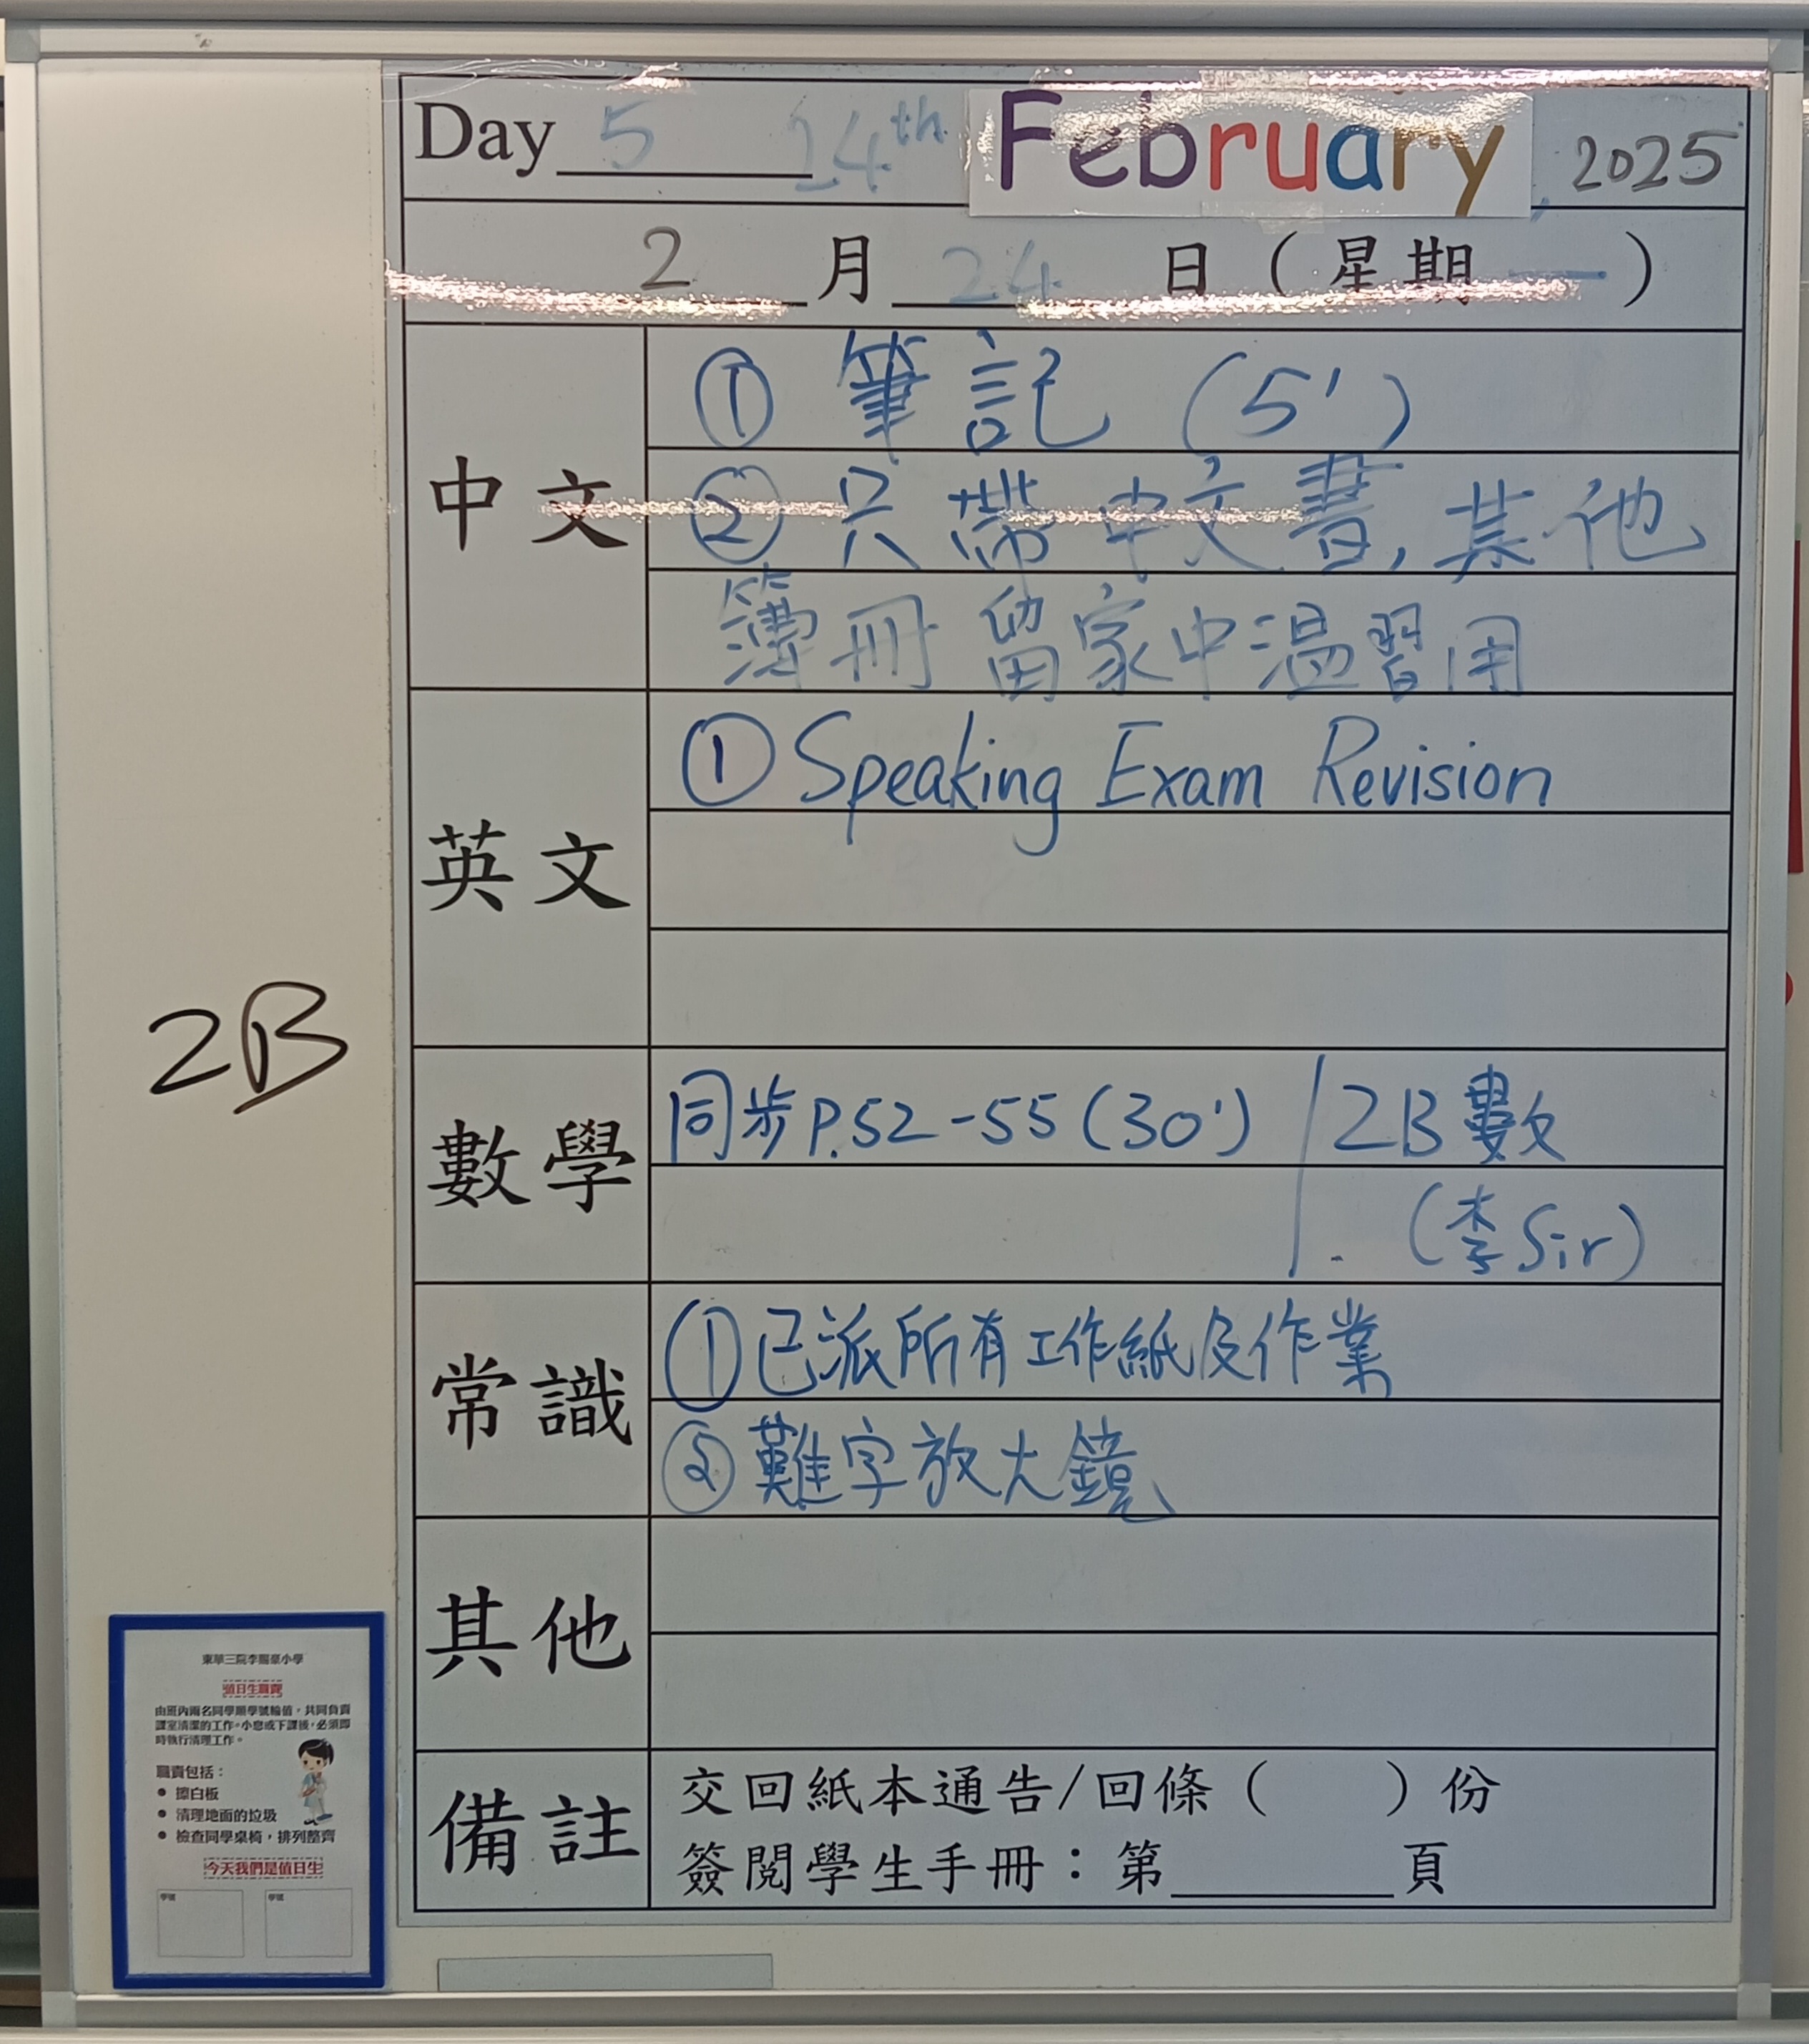 Day 5 24th February, 2025
2 月 24 日 ( 星期 一 )
中文
① 筆記 (5')
② 只帶中文書, 其他
簿冊留家中温習用
英文
① Speaking Exam Revision
數學
同步 P.52-55 (30') / 2B 數
(李Sir)
常識
① 已派所有工作紙及作業
② 難字放大鏡
其他
備註
交回紙本通告/回條 ( ) 份
簽閱學生手冊：第 頁
2B
東華三院李賜豪小學
值日生職責
由班內兩名同學順學號輪值，共同負責
課室清潔的工作。小息或下課後，必須即
時執行清理工作。
職責包括：
● 擦白板
● 清理地面的垃圾
● 檢查同學桌椅，排列整齊
今天我們是值日生
學號 學號